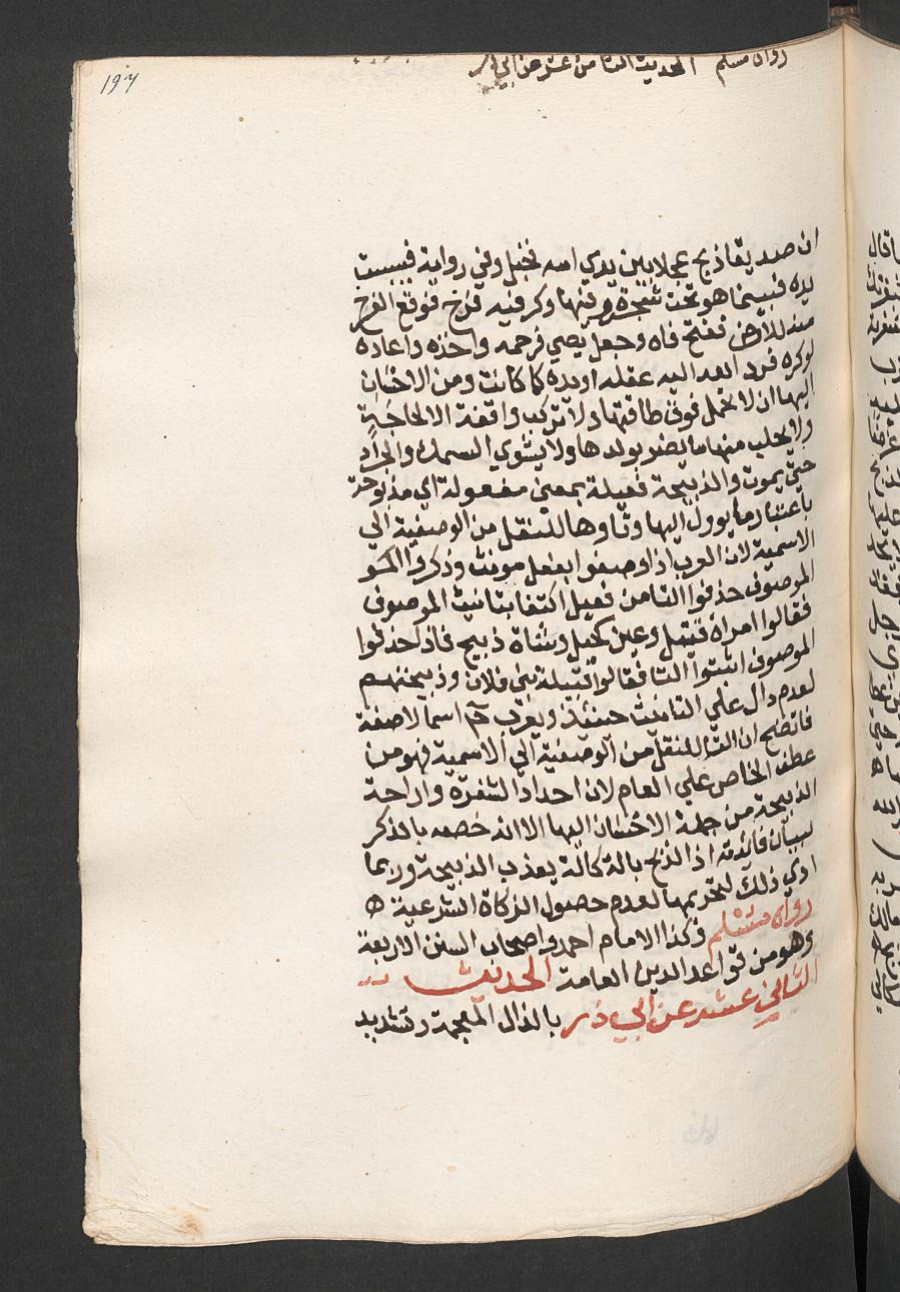 رواه مسلم الحديث الثامن عشر عن ابي ذر
197
ان صديقا ذبح عجلا بين يدي امه فخبل وفي رواية فيبست
يده فبينما هو تحت شجرة وفيها وكر فيه فرخ فوقع الفرخ
منه للارض ففتح فاه وجعل يصي فرحمه واخذه واعاده
لوكره فرد الله اليه عقله او يده كما كانت ومن الاحسان
اليها ان لا تحمل فوق طاقتها ولا تركب واقفة الا لحاجة
ولا يحلب منها ما يضر بولدها ولا يشوي السمك والجراد
حتى يموت والذبيحة فعيلة بمعنى مفعولة اي مذبوحة
باعتبار ما يوول اليها وتاوها للنقل من الوصفية الي
الاسمية لان العرب اذا وصفوا بفعل مونث وذكروا المو
الموصوف حذفوا التا من فعيل اكتفا بتانيث الموصوف
فقالوا امراة قتيل وعين كحيل وشاة ذبيح فاذا حذفوا
الموصوف اثبتوا التا فقالوا قتيلة بني فلان وذبيحتهم
لعدم دال علي التانيث حينئذ ويعرب ح اسما لا صفة
فاتضح ان التا للنقل من الوصفية الي الاسمية فهو من
عطف الخاص علي العام لان احداد الشفرة واراحة
الذبيحة من جملة الاحسان اليها الا انه خصه بالذكر
لبيان فائدته اذ الذبح بالة كالة يعذب الذبيحة وربما
ادي ذلك لتحريمها لعدم حصول الزكاة الشرعية ه
رواه مسلم وكذا الامام احمد واصحاب السنن الاربعة
وهو من قواعد الدين العامة الحديث
الثامن عشر عن ابي ذر بالذال المعجمة وتشديد